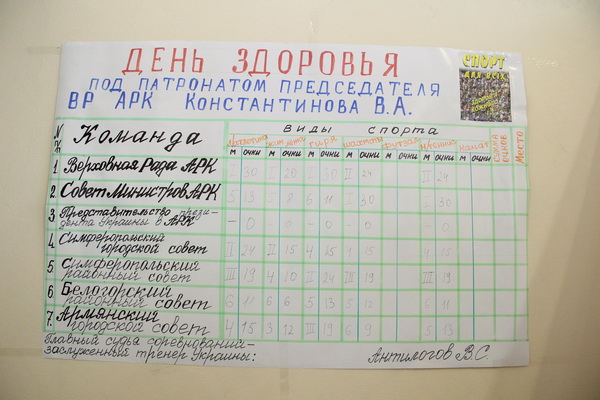 ДЕНЬ ЗДОРОВЬЯ
ПОД ПАТРОНАТОМ ПРЕДСЕДАТЕЛЯ
ВР АРК КОНСТАНТИНОВА В.А.
СПОРТ
ДЛЯ ВСЕХ
Команда
ВИДЫ СПОРТА
гиря шахматы футбол канат сумма очков Место
м очки м очки м очки м очки м очки м очки м очки
1 Верховная Рада АРК I 30 I 20 I 30 II 24 II 24
2. Совет Министров АРК 5 13 5 8 6 11 I 30 I 30
3 Представительство прези-
дента Украины в АРК - 0 - 0 - 0 - 0 - 0
4. Симферопольский
городской совет II 24 II 15 4 15 4 15 4 15
5. Симферопольский
районный совет III 19 4 10 II 24 III 19 III 19
6. Белогорский
районный совет 6 11 6 6 5 13 5 12 6 11
7. Армянский
городской совет 4 15 3 12 III 19 6 9 5 13
Главный судья соревнований-
заслуженный тренер Украины: Антилогов В.С.